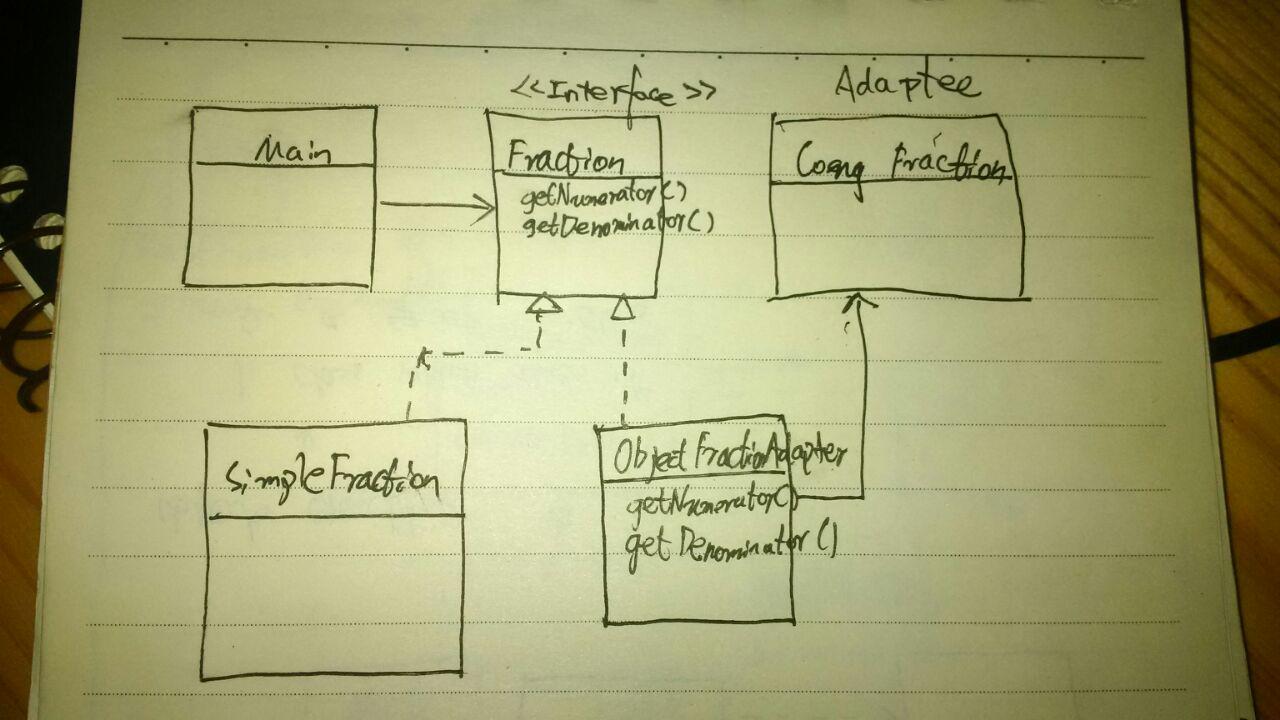 <<Interface>>
Adaptee
Main
Fraction
getNumerator()
getDenominator()
Fraction
SimpleFraction
ObjectFractionAdapter
getNumerator()
getDenominator()